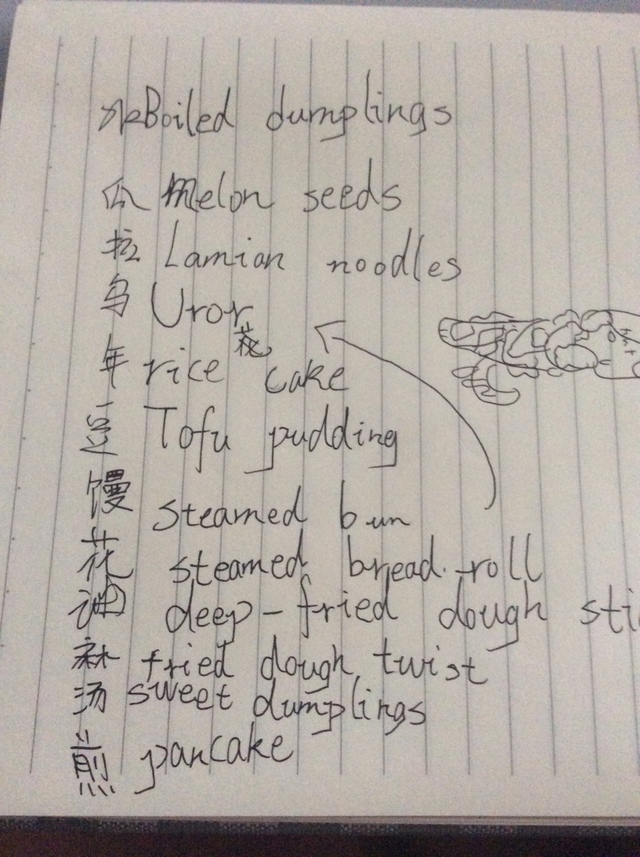 水Boiled dumplings
瓜 melon seeds
拉 Lamian noodles
乌 Uror
年 rice cake
花
豆 Tofu pudding
馒 steamed bun
花 steamed bread roll
油 deep-fried dough sti
麻 fried dough twist
汤 sweet dumplings
煎 pancake